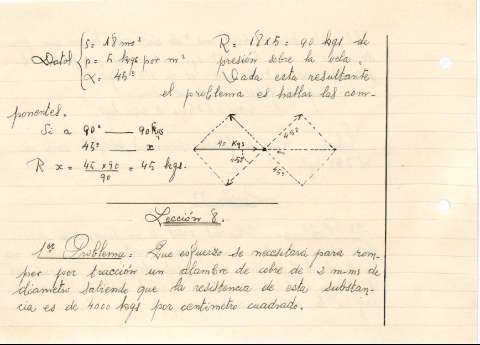 Datos { S = 18 ms² R = 18 x 5 = 90 kgs de
p = 5 kgs por m² presión sobre la vela.
α = 45º Dada esta resultante
el problema es hallar las com-
ponentes.
Si a 90º — 90 kgs
45º — x
R x = 45 x 90 / 90 = 45 kgs.
90 Kgs 45º 45º 45º
Lección 8.
1er Problema: Que esfuerzo se necesitará para rom-
per por tracción un alambre de cobre de 2 m-ms de
diametro sabiendo que la resistencia de esta substan-
cia es de 4000 kgs por centimetro cuadrado.